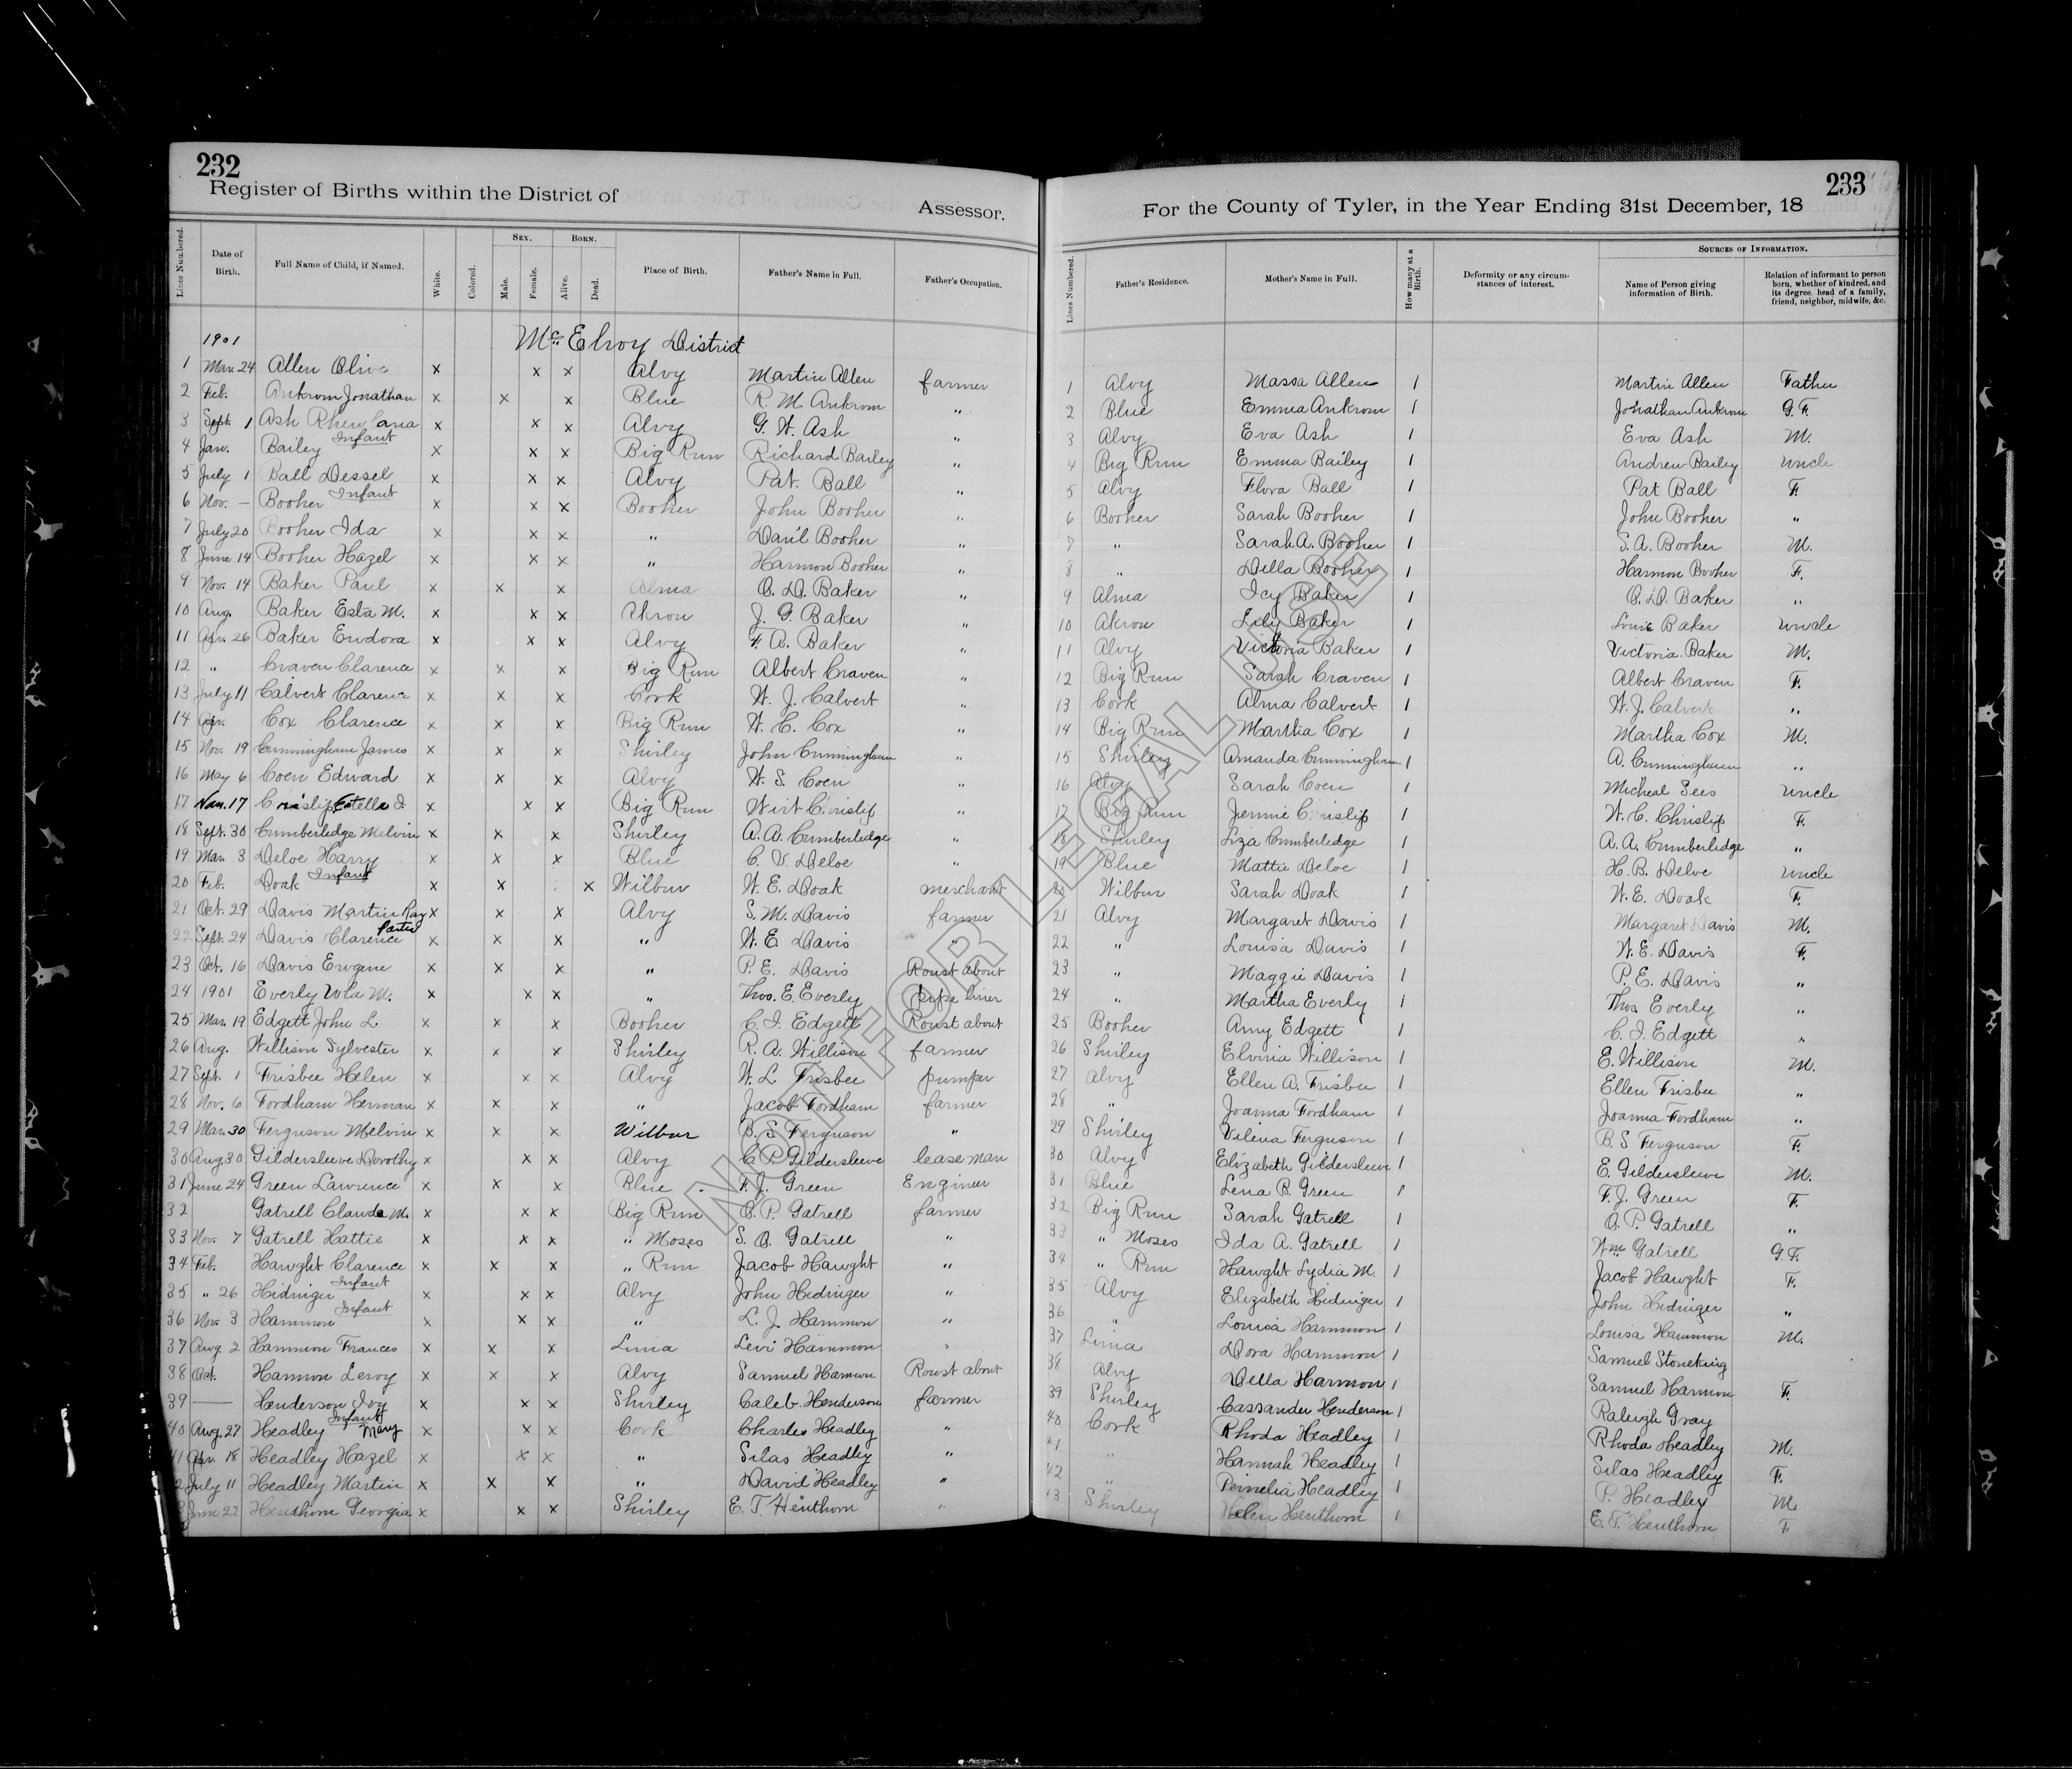 232
Register of Births within the District of
Assessor.
Lines Numbered. Date of Birth. Full Name of Child, if Named. White. Colored. Sex. Male. Female. Born. Alive. Dead. Place of Birth. Father's Name in Full. Father's Occupation.
1901 Mc Elroy District
1 Mar. 24 Allen Olive x x x Alvy Martin Allen farmer
2 Feb. Ankrom Jonathan x x x Blue R. M. Ankrom "
3 Sept. 1 Ash x x x Alvy G. W. Ash "
4 Jan. Bailey Infant x x x Big Run Richard Bailey "
5 July 1 Ball Dessel x x x Alvy Pat. Ball "
6 Nov. — Booher Infant x x x Booher John Booher "
7 July 20 Booher Ida x x x " Dan'l Booher "
8 June 14 Booher Hazel x x x " Harmon Booher "
9 Nov. 14 Baker Paul x x x Alma O. D. Baker "
10 Aug. Baker Esta M. x x x Akron J. G. Baker "
11 Apr. 26 Baker Endora x x x Alvy F. A. Baker "
12 " Craven Clarence x x x Big Run Albert Craven "
13 July 11 Calvert Clarence x x x Cork W. J. Calvert "
14 Apr. Cox Clarence x x x Big Run W. C. Cox "
15 Nov. 19 Cunningham James x x x Shirley John Cunningham "
16 May 6 Coen Edward x x x Alvy W. S. Coen "
17 Jan. 17 Chrislip Estella I x x x Big Run Wirt Chrislip "
18 Sept. 30 Cumberledge Melvin x x x Shirley A. A. Cumberledge "
19 Mar. 3 Deloe Harry x x x Blue C. V. Deloe "
20 Feb. Doak Infant x x x Wilbur W. E. Doak merchant
21 Oct. 29 Davis Martin Ray x x x Alvy S. M. Davis farmer
22 Sept. 24 Davis Clarence Porter x x x " W. E. Davis "
23 Oct. 16 Davis Eugene x x x " P. E. Davis Roust about
24 1901 Everly Wla M. x x x " Thos. E. Everly pipe liner
25 Mar. 19 Edgett John L. x x x Booher C. I. Edgett Roust about
26 Aug. Willison Sylvester x x x Shirley R. A. Willison farmer
27 Sept. 1 Frisbee Helen x x x Alvy W. L. Frisbee pumper
28 Nov. 6 Fordham Herman x x x " Jacob Fordham farmer
29 Mar. 30 Ferguson Melvin x x x Wilbur B. S. Ferguson "
30 Aug 30 Gildersleeve Dorothy x x x Alvy C. P. Gildersleeve lease man
31 June 24 Green Lawrence x x x Blue F. J. Green Engineer
32 Gatrell Claude M. x x x Big Run O. P. Gatrell farmer
33 Nov. 7 Gatrell Hattie x x x " Moses S. O. Gatrell "
34 Feb. Hawght Clarence x x x " Run Jacob Hawght "
35 " 26 Hidinger Infant x x x Alvy John Hidinger "
36 Nov. 3 Hammon Infant x x x " L. J. Hammon "
37 Aug 2 Hammon Frances x x x Lima Levi Hammon "
38 Oct. Harmon Leroy x x x Alvy Samuel Harmon Roust about
39 — Henderson Ivy x x x Shirley Caleb Henderson farmer
40 Aug. 27 Headley Infant Mary x x x Cork Charles Headley "
41 Apr. 18 Headley Hazel x x x " Silas Headley "
2 July 11 Headley Martin x x x " David Headley "
3 June 22 Henthorn Georgia x x x Shirley E. T. Henthorn "
233
For the County of Tyler, in the Year Ending 31st December, 18
Lines Numbered. Father's Residence. Mother's Name in Full. How many at a Birth. Deformity or any circumstances of interest. Sources of Information. Name of Person giving information of Birth. Relation of informant to person born, whether of kindred, and its degree, head of a family, friend, neighbor, midwife, &c.
1 Alvy Massa Allen 1 Martin Allen Father
2 Blue Emma Ankrom 1 Johnathan Ankrom G. F.
3 Alvy Eva Ash 1 Eva Ash M.
4 Big Run Emma Bailey 1 Andrew Bailey uncle
5 Alvy Flora Ball 1 Pat Ball F.
6 Booher Sarah Booher 1 John Booher "
7 " Sarah A. Booher 1 S. A. Booher M.
8 " Della Booher 1 Harmon Booher F.
9 Alma Icy Baker 1 O. D. Baker "
10 Akron Lily Baker 1 Louis Baker uncle
11 Alvy Victoria Baker 1 Victoria Baker M.
12 Big Run Sarah Craven 1 Albert Craven F.
13 Cork Alma Calvert 1 W. J. Calvert "
14 Big Run Martha Cox 1 Martha Cox M.
15 Shirley Amanda Cunningham 1 A. Cunningham "
16 Alvy Sarah Coen 1 Micheal Sees uncle
17 Big Run Jennie Chrislip 1 W. C. Chrislip F.
18 Shirley Liza Cumberledge 1 A. A. Cumberledge "
19 Blue Mattie Deloe 1 H. B. Deloe uncle
20 Wilbur Sarah Doak 1 W. E. Doak F.
21 Alvy Margaret Davis 1 Margaret Davis M.
22 " Louisa Davis 1 W. E. Davis F.
23 " Maggie Davis 1 P. E. Davis "
24 " Martha Everly 1 Thos. Everly "
25 Booher Amy Edgett 1 C. I. Edgett "
26 Shirley Elvina Willison 1 E. Willison M.
27 Alvy Ellen A. Frisbee 1 Ellen Frisbee "
28 " Joanna Fordham 1 Joanna Fordham "
29 Shirley Vilena Ferguson 1 B. S Ferguson F.
30 Alvy Elizabeth Gildersleeve 1 E. Gildersleeve M.
31 Blue Lena B. Green 1 F. J. Green F.
32 Big Run Sarah Gatrell 1 O. P. Gatrell "
33 " Moses Ida A. Gatrell 1 Wm. Gatrell G F.
34 " Run Hawght Lydia M. 1 Jacob Hawght F.
35 Alvy Elizabeth Hidinger 1 John Hidinger "
36 " Louisa Hammon 1 Louisa Hammon M.
37 Lima Dora Hammon 1 Samuel Stoneking
38 Alvy Della Harmon 1 Samuel Harmon F.
39 Shirley Cassander Henderson 1 Raleigh Gray
40 Cork Rhoda Headley 1 Rhoda Headley M.
41 " Hannah Headley 1 Silas Headley F.
42 " Permelia Headley 1 P. Headley M.
43 Shirley Helen Henthorn 1 E. T. Henthorn F
NOT FOR LEGAL USE